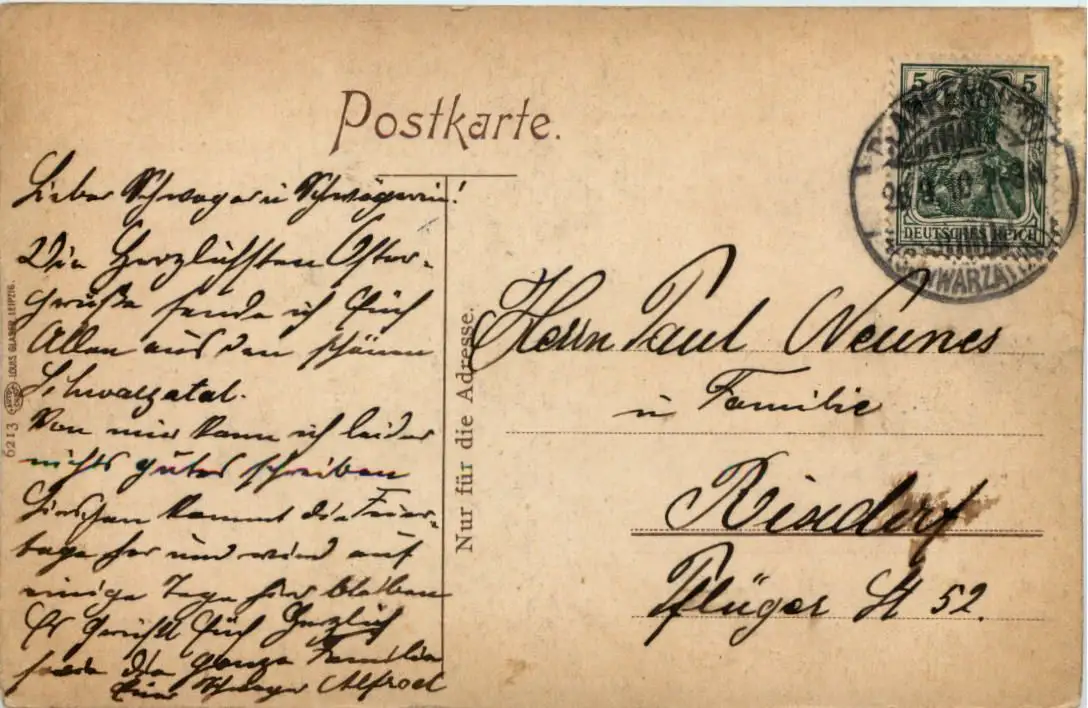 Postkarte.
Lieber Schwager u Schwägerin!
Die Herzlichsten Oster-
grüße sende ich Euch
Allen aus den schönen
Schwarzatal.
Von mir kann ich leider
nichts gutes schreiben
Lieschen kommt die Feier-
tage her und wird auf
einige Tage hier bleiben
Es Grüßt Euch Herzlich
sowie die ganze Familie
Euer Schwager Alfred
Nur für die Adresse.
6213
LOUIS GLASER LEIPZIG.
5 5
DEUTSCHES REICH
SCHWARZATHAL
Herrn Paul Neunes
u Familie
Rixdorf
Pflüger St 52.